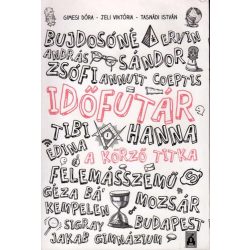 GIMESI DÓRA · JELI VIKTÓRIA · TASNÁDI ISTVÁN
BUJDOSÓNÉ ERVIN
ANDRÁS SÁNDOR
ZSÓFI ANNUIT COEPTIS
IDŐFUTÁR
TIBI HANNA
EDINA A KÖRZŐ TITKA
FELEMÁSSZEMŰ
GÉZA BÁ' MOZSÁR
KEMPELEN BUDAPEST
SIGRAY
JAKAB GIMNÁZIUM